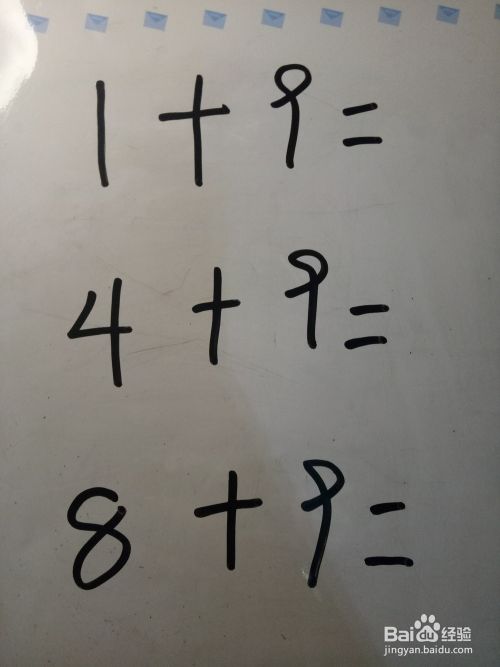 1 + 9 =
4 + 9 =
8 + 9 =
Baidu 经验
jingyan.baidu.com